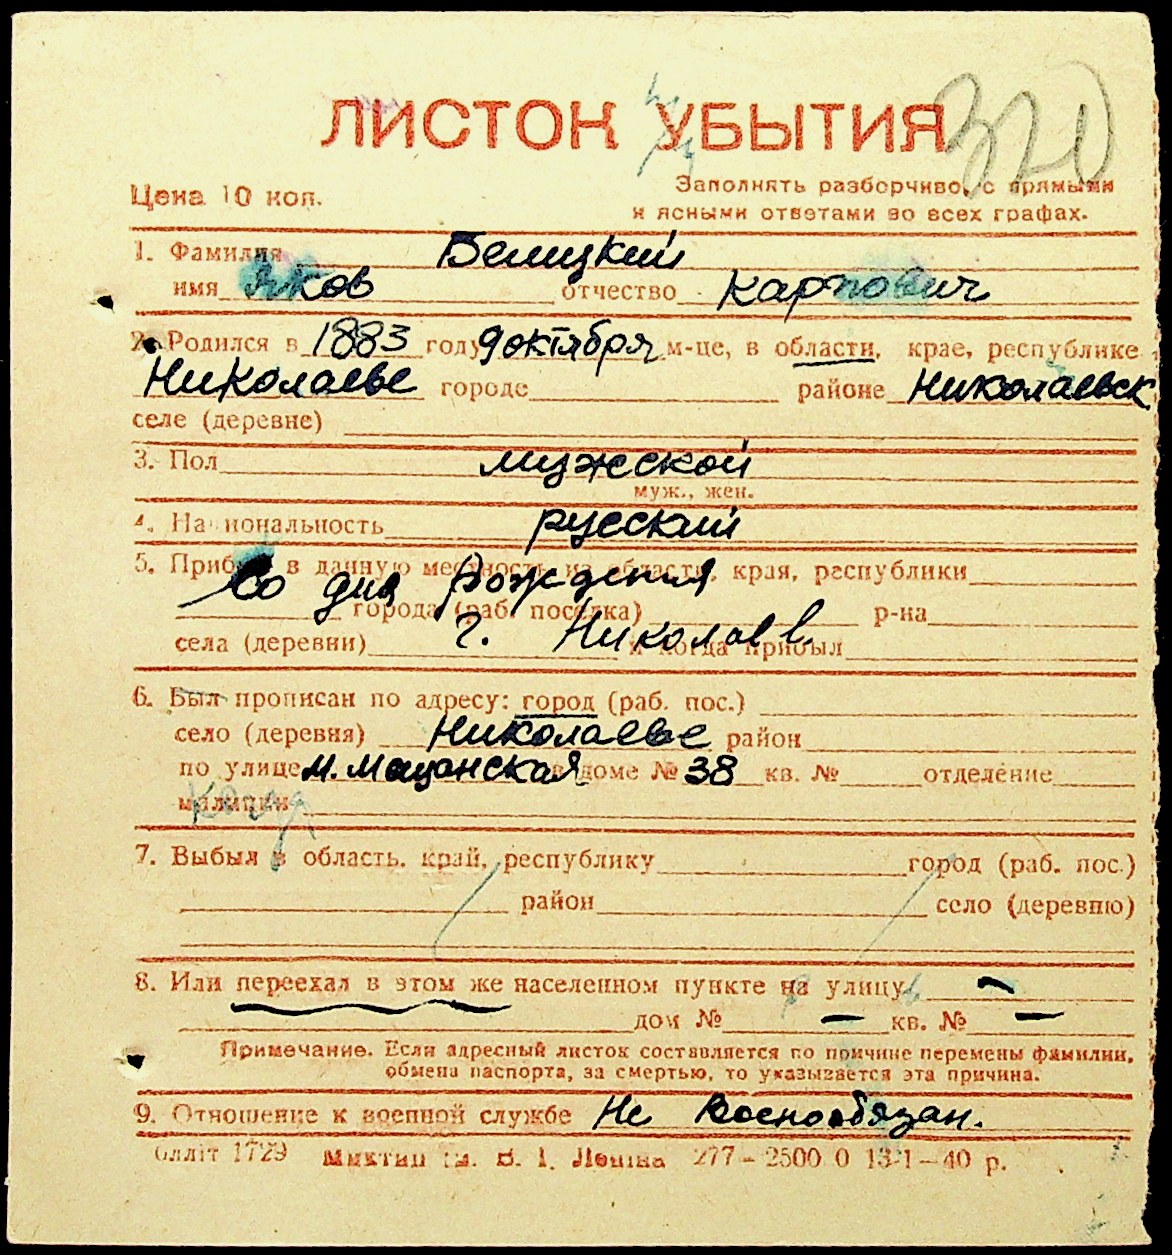 ЛИСТОК УБЫТИЯ 320
Цена 10 коп.
Заполнять разборчиво, с прямыми
и ясными ответами во всех графах.
1. Фамилия Белицкий
имя Яков отчество Карпович
2. Родился в 1883 году 9 октября м-це, в области, крае, республике
Николаеве городе районе Николаевск
селе (деревне)
3. Пол мужской
муж., жен.
4. Национальность русский
5. Прибыл в данную местность из области, края, республики
Со дня Рождения
города (раб. поселка) р-на
г. Николаев.
села (деревни) и когда прибыл
6. Был прописан по адресу: город (раб. пос.)
село (деревня) Николаеве район
по улице в доме № 38 кв. № отделение
милиции
7. Выбыл в область, край, республику город (раб. пос.)
район село (деревню)
8. Или переехал в этом же населенном пункте на улицу —
дом № — кв. № —
Примечание. Если адресный листок составляется по причине перемены фамилии,
обмена паспорта, за смертью, то указывается эта причина.
9. Отношение к военной службе Не Военнообязан.
1729 277-2500 0